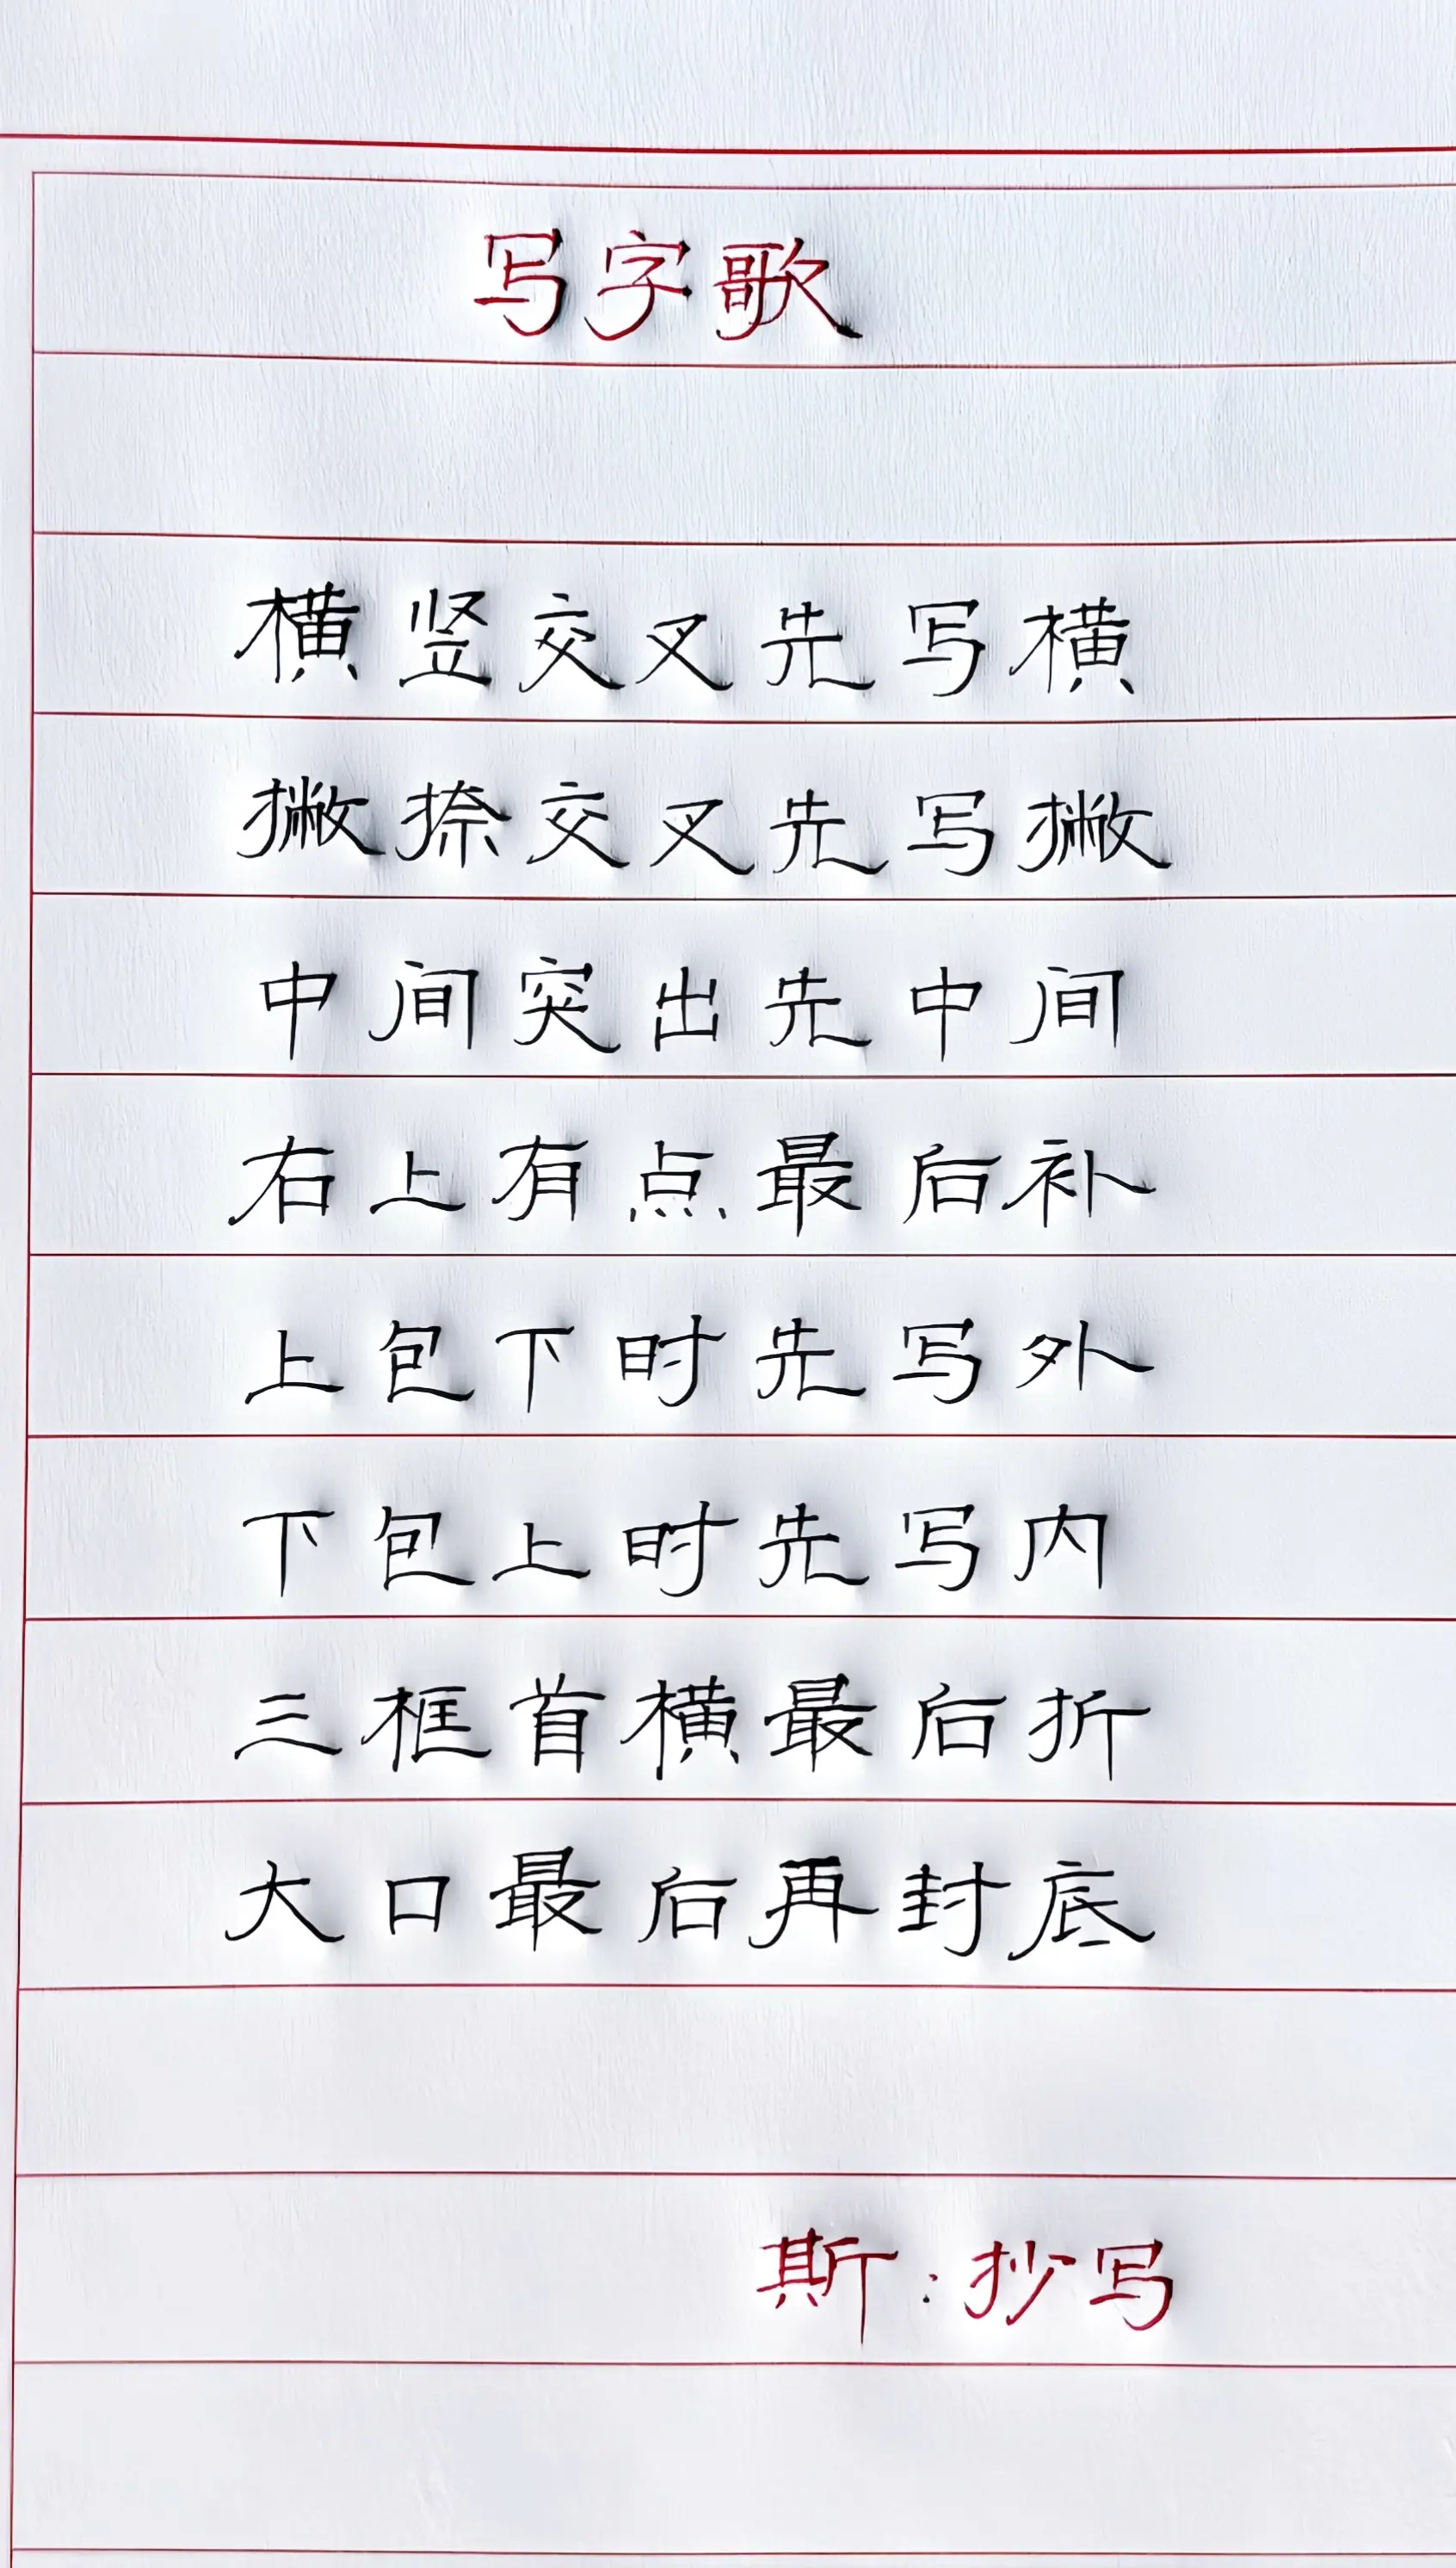 写字歌
横竖交叉先写横
撇捺交叉先写撇
中间突出先中间
右上有点最后补
上包下时先写外
下包上时先写内
三框首横最后折
大口最后再封底
斯:抄写